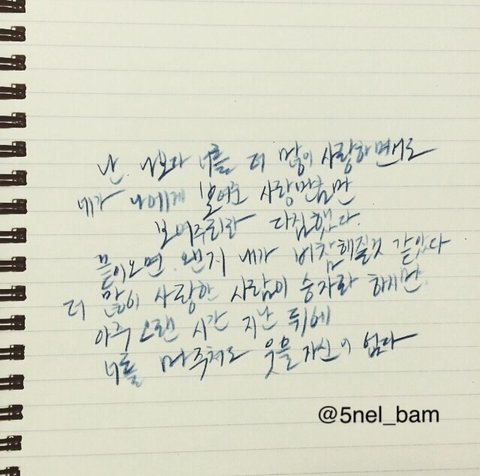 난 나보다 너를 더 많이 사랑하면서도
네가 나에게 보여준 사랑만큼만
보여주리라 다짐했다.
끝이오면 왠지 내가 비참해질것 같았다
더 많이 사랑한 사람이 승자라 하지만
아주 오랜 시간 지난 뒤에
너를 마주쳐도 웃을 자신이 없다
@5nel_bam